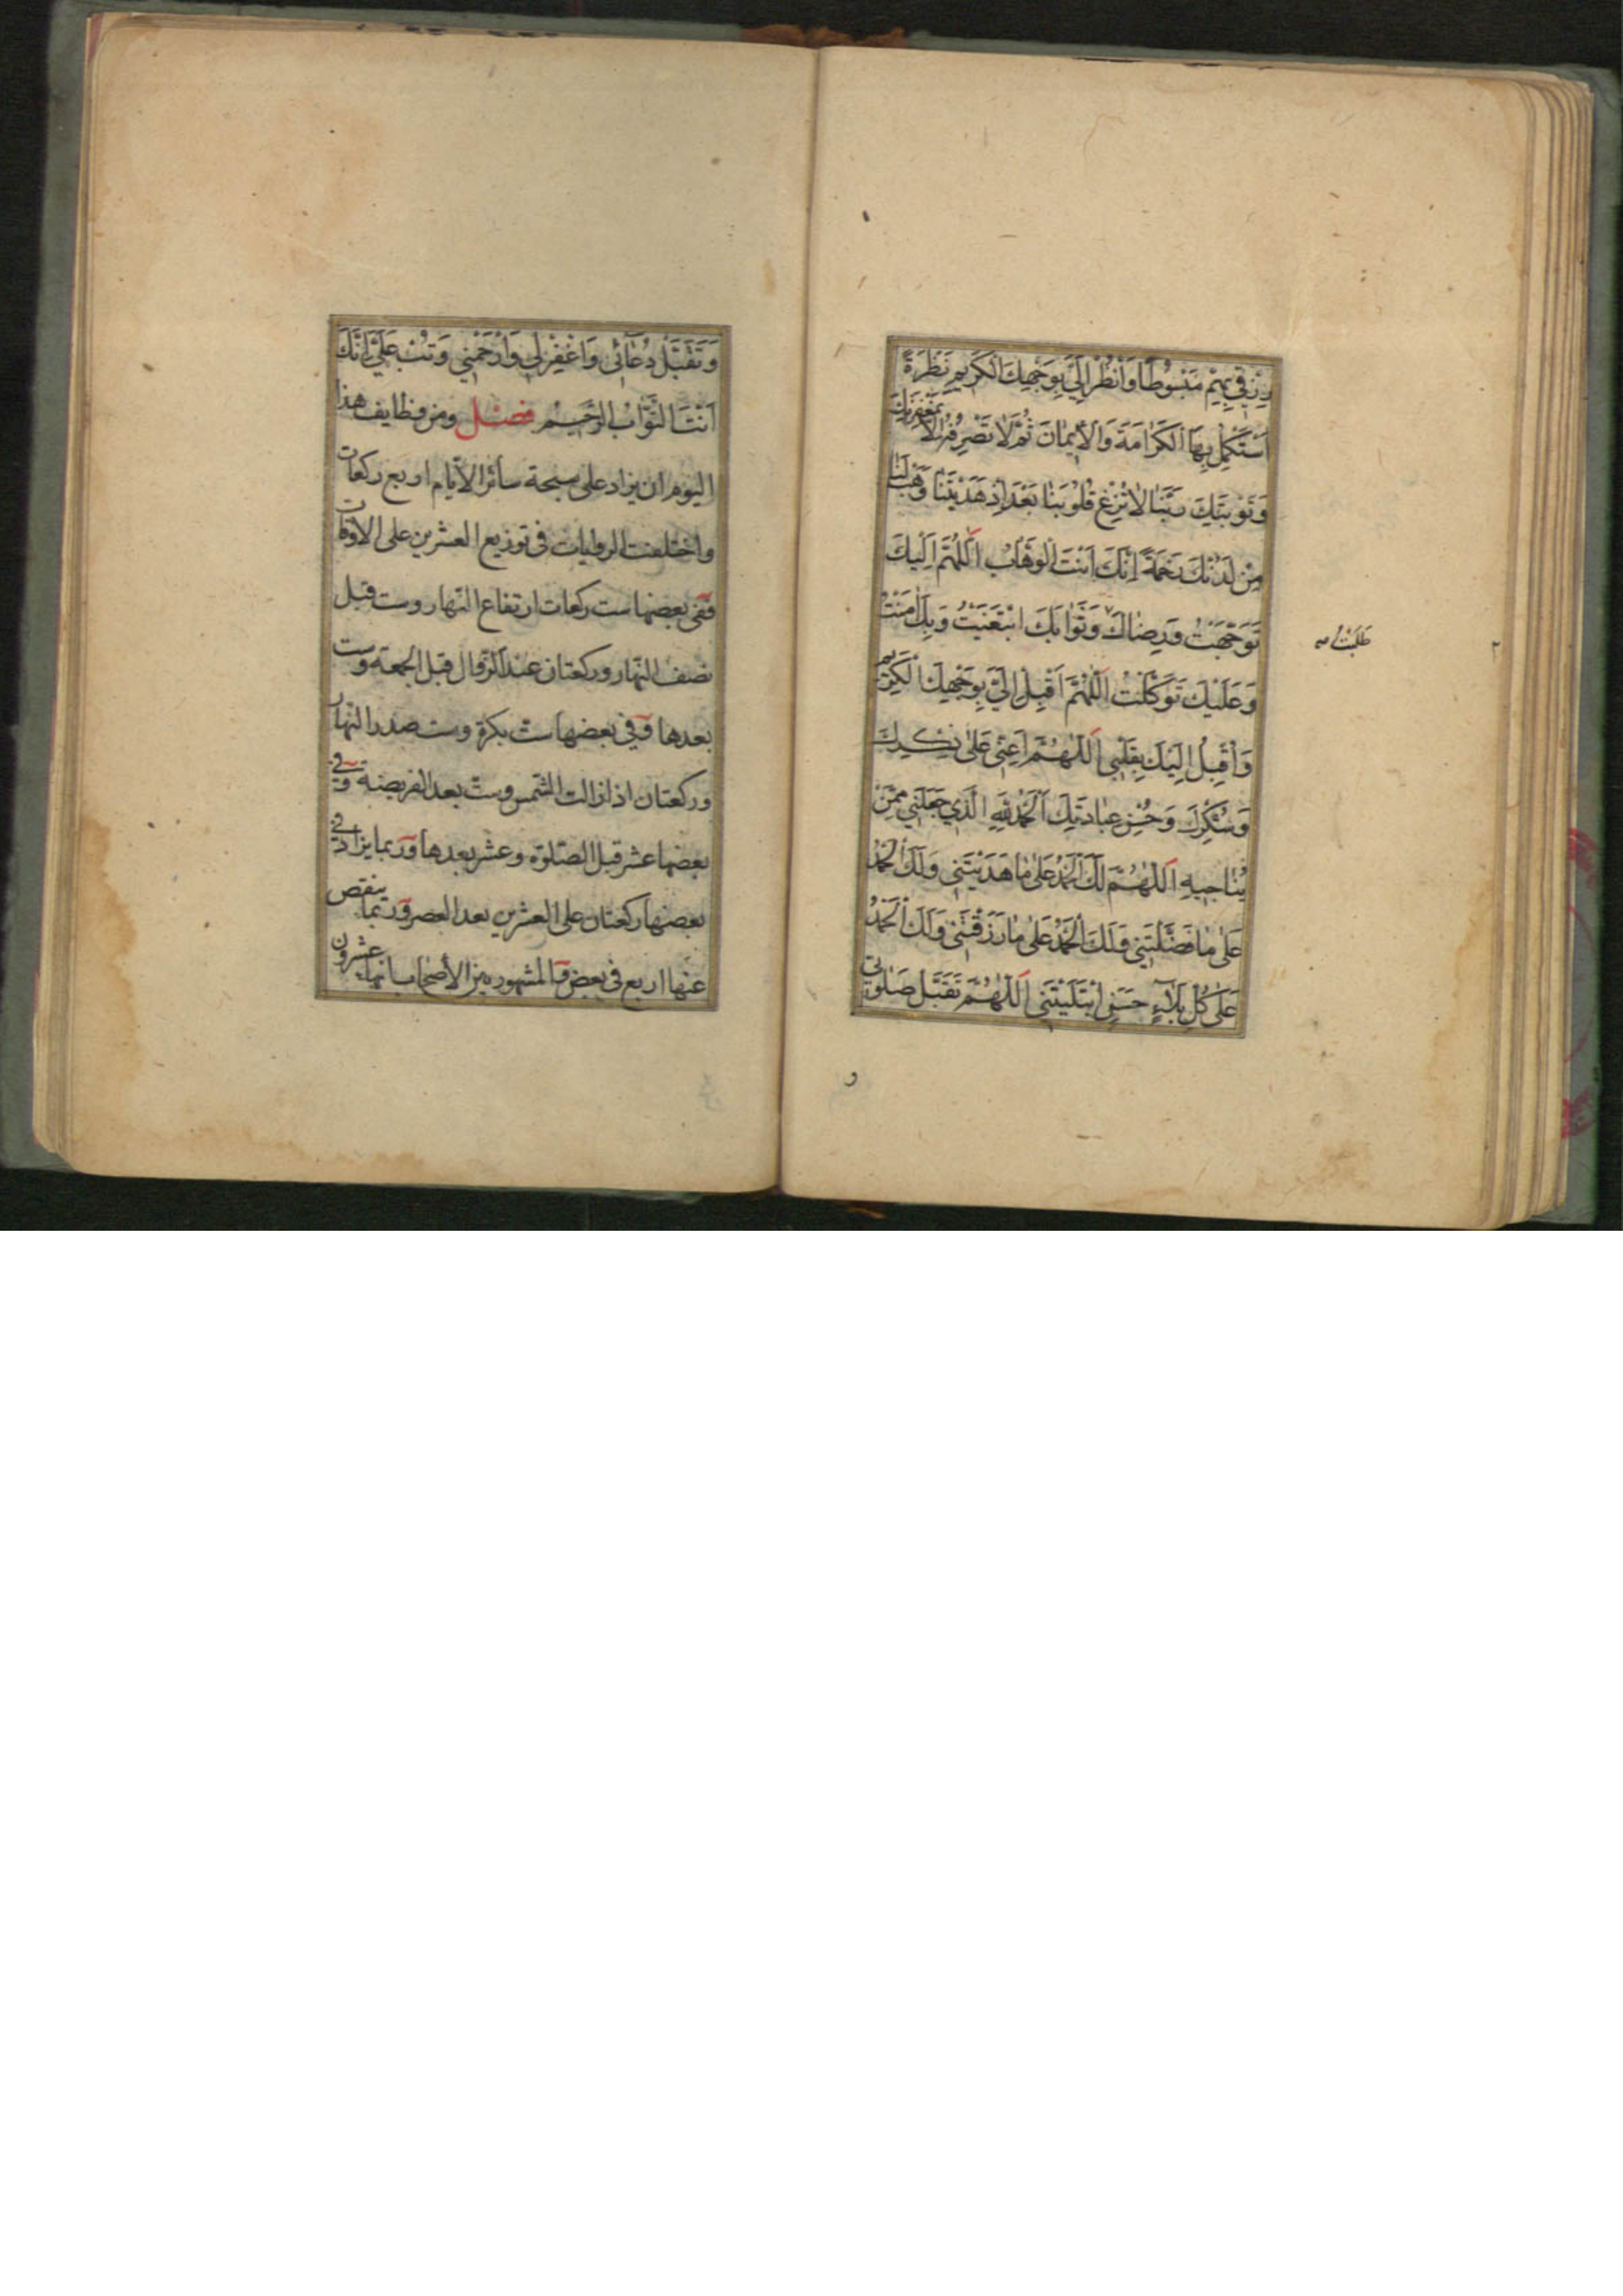 رِزْقِي بِهِمْ مَبْسُوطًا وَانْظُرْ اِلَيَّ بِوَجْهِكَ الْكَرِيمِ نَظْرَةً
اَسْتَكْمِلُ بِهَا الْكَرَامَةَ وَالْاِيمَانَ ثُمَّ لَا تَصْرِفْهُ اِلَّا بِمَغْفِرَتِكَ
وَتَوْبَتِكَ رَبَّنَا لَا تُزِغْ قُلُوبَنَا بَعْدَ اِذْ هَدَيْتَنَا وَهَبْ لَنَا
مِنْ لَدُنْكَ رَحْمَةً اِنَّكَ اَنْتَ الْوَهَّابُ اَللّٰهُمَّ اِلَيْكَ
تَوَجَّهْتُ وَرِضَاكَ وَثَوَابَكَ ابْتَغَيْتُ وَبِكَ اٰمَنْتُ
طلبت
وَعَلَيْكَ تَوَكَّلْتُ اَللّٰهُمَّ اَقْبِلْ اِلَيَّ بِوَجْهِكَ الْكَرِيمِ
وَاَقْبِلْ اِلَيْكَ بِقَلْبِي اَللّٰهُمَّ اَعِنِّي عَلٰى ذِكْرِكَ
وَشُكْرِكَ وَحُسْنِ عِبَادَتِكَ اَلْحَمْدُ لِلّٰهِ الَّذِي جَعَلَنِي مِمَّنْ
يُنَاجِيهِ اَللّٰهُمَّ لَكَ الْحَمْدُ عَلٰى مَا هَدَيْتَنِي وَلَكَ الْحَمْدُ
عَلٰى مَا فَضَّلْتَنِي وَلَكَ الْحَمْدُ عَلٰى مَا رَزَقْتَنِي وَلَكَ الْحَمْدُ
عَلٰى كُلِّ بَلَاءٍ حَسَنٍ ابْتَلَيْتَنِي اَللّٰهُمَّ تَقَبَّلْ صَلٰوتِي
و
وَتَقَبَّلْ دُعَائِي وَاغْفِرْ لِي وَارْحَمْنِي وَتُبْ عَلَيَّ اِنَّكَ
اَنْتَ التَّوَّابُ الرَّحِيمُ فصل ومن وظايف هذا
اليوم ان يزاد على سبحة سائر الأيام اربع ركعات
واختلفت الروايات فى توزيع العشرين على الاوقات
ففى بعضها ست ركعات ارتفاع النهار وست قبل
نصف النهار وركعتان عند الزوال قبل الجمعة وست
بعدها وفي بعضها ست بكرة وست صدر النهار
وركعتان اذا زالت الشمس وست بعد الفريضة وفي
بعضها عشر قبل الصلوة وعشر بعدها وربما يزاد في
بعضها ركعتان على العشرين بعد العصر وربما ينقص
عنها اربع فى بعض والمشهور من الأصحاب انها عشرون